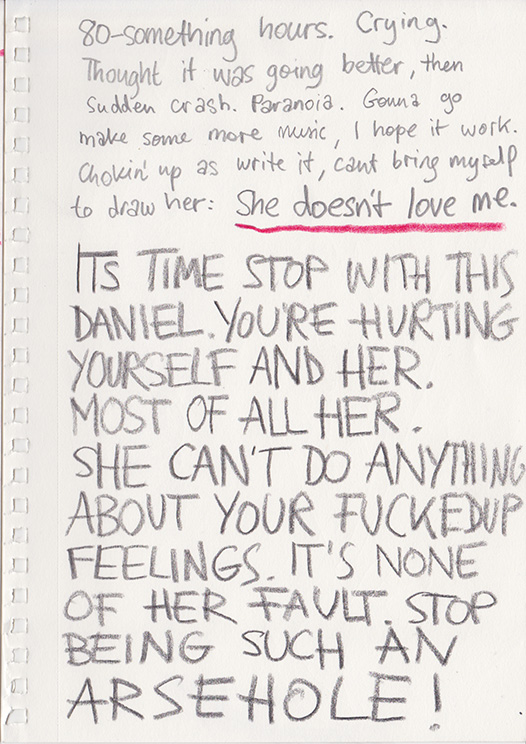 80-something hours. Crying.
Thought it was going better, then
sudden crash. Paranoia. Gonna go
make some more music, I hope it work.
Chokin' up as write it, cant bring myself
to draw her: She doesn't love me.
ITS TIME STOP WITH THIS
DANIEL. YOU'RE HURTING
YOURSELF AND HER.
MOST OF ALL HER.
SHE CAN'T DO ANYTHING
ABOUT YOUR FUCKEDUP
FEELINGS. IT'S NONE
OF HER FAULT. STOP
BEING SUCH AN
ARSEHOLE!